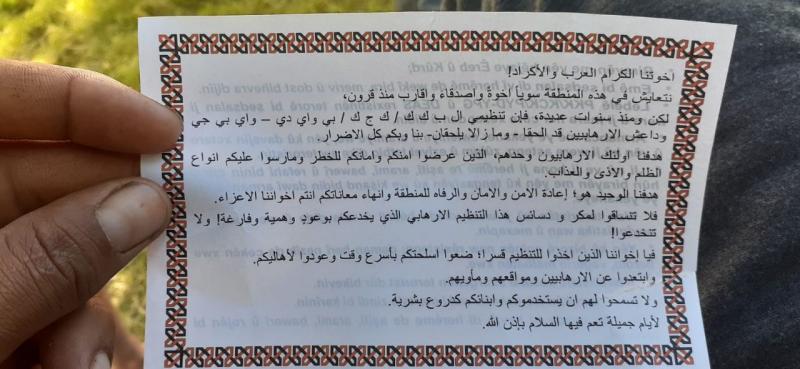 اخوتنا الكرام العرب والاكراد!
نتعايش في هذه المنطقة سويا اخوة واصدقاء واقارب منذ قرون،
لكن ومنذ سنوات عديدة، فإن تنظيمي ال ب ك ك / ك ج ك / بي واي دي – واي بي جي
وداعش الارهابيين قد الحقا - وما زالا يلحقان- بنا وبكم كل الاضرار.
هدفنا اولئك الارهابيون وحدهم، الذين عرضوا امنكم وامانكم للخطر ومارسوا عليكم انواع
الظلم والاذى والعذاب.
هدفنا الوحيد هو؛ إعادة الامن والامان والرفاه للمنطقة وانهاء معاناتكم انتم اخواننا الاعزاء.
فلا تتساقوا لمكر و دسائس هذا التنظيم الارهابي الذي يخدعكم بوعودٍ وهمية وفارغة! ولا
تنخدعوا!
فيا إخواننا الذين اخذوا للتنظيم قسرا؛ ضعوا اسلحتكم بأسرع وقت وعودوا لأهاليكم.
وابتعدوا عن الارهابيين ومواقعهم ومأويهم.
ولا تسمحوا لهم ان يستخدموكم وابنائكم كدروع بشرية.
لأيام جميلة تعم فيها السلام بإذن الله.